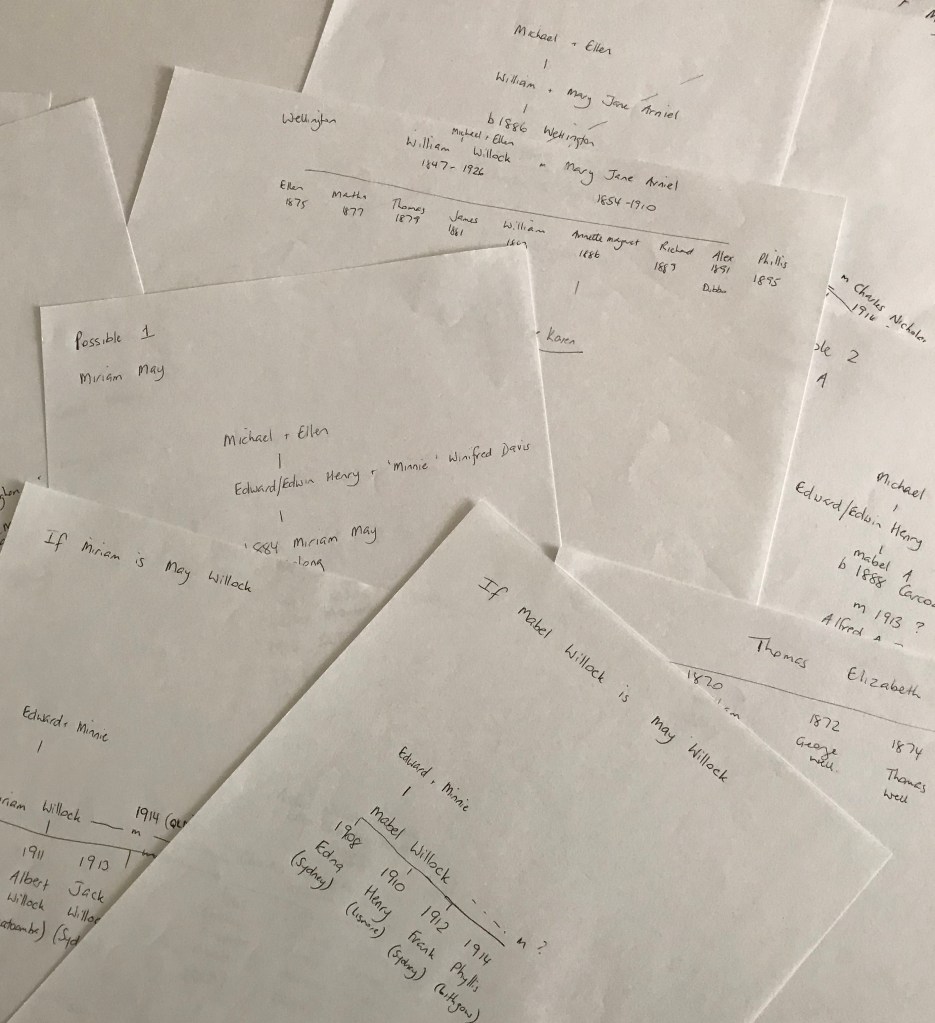 Michael + Ellen
William + Mary Jane Arniel
b 1886 Wellington
Wellington
Michael + Ellen
William Willock m Mary Jane Arniel
1847 - 1926
1854 - 1910
Ellen
1875
Martha
1877
Thomas
1879
James
1881
William
Annette margret
1886
Richard
1887
Alex
1891
Dubbo
Phillis
1895
Karen
m Charles Nicholas
1914
2
A
Michael
Edward/Edwin Henry
mabel A
b 1888 Carcoa
m 1913 ?
Alfred A
Possible 1
Miriam May
Michael + Ellen
Edward/Edwin Henry + 'Minnie' Winifred Davis
1884 Miriam May
Thomas Elizabeth
1870
1872
George
well.
1874
Thomas
well
If Miriam is May Willock
Edward + Minnie
riam Willock m 1914
1911
Albert
Willock
1913
Jack
If Mabel Willock is May Willock
Edward + Minnie
Mabel Willock m ?
1908
Edna
(Sydney)
1910
Henry
(Lismore)
1912
Frank
(Sydney)
1914
Phyllis
(Lithgow)